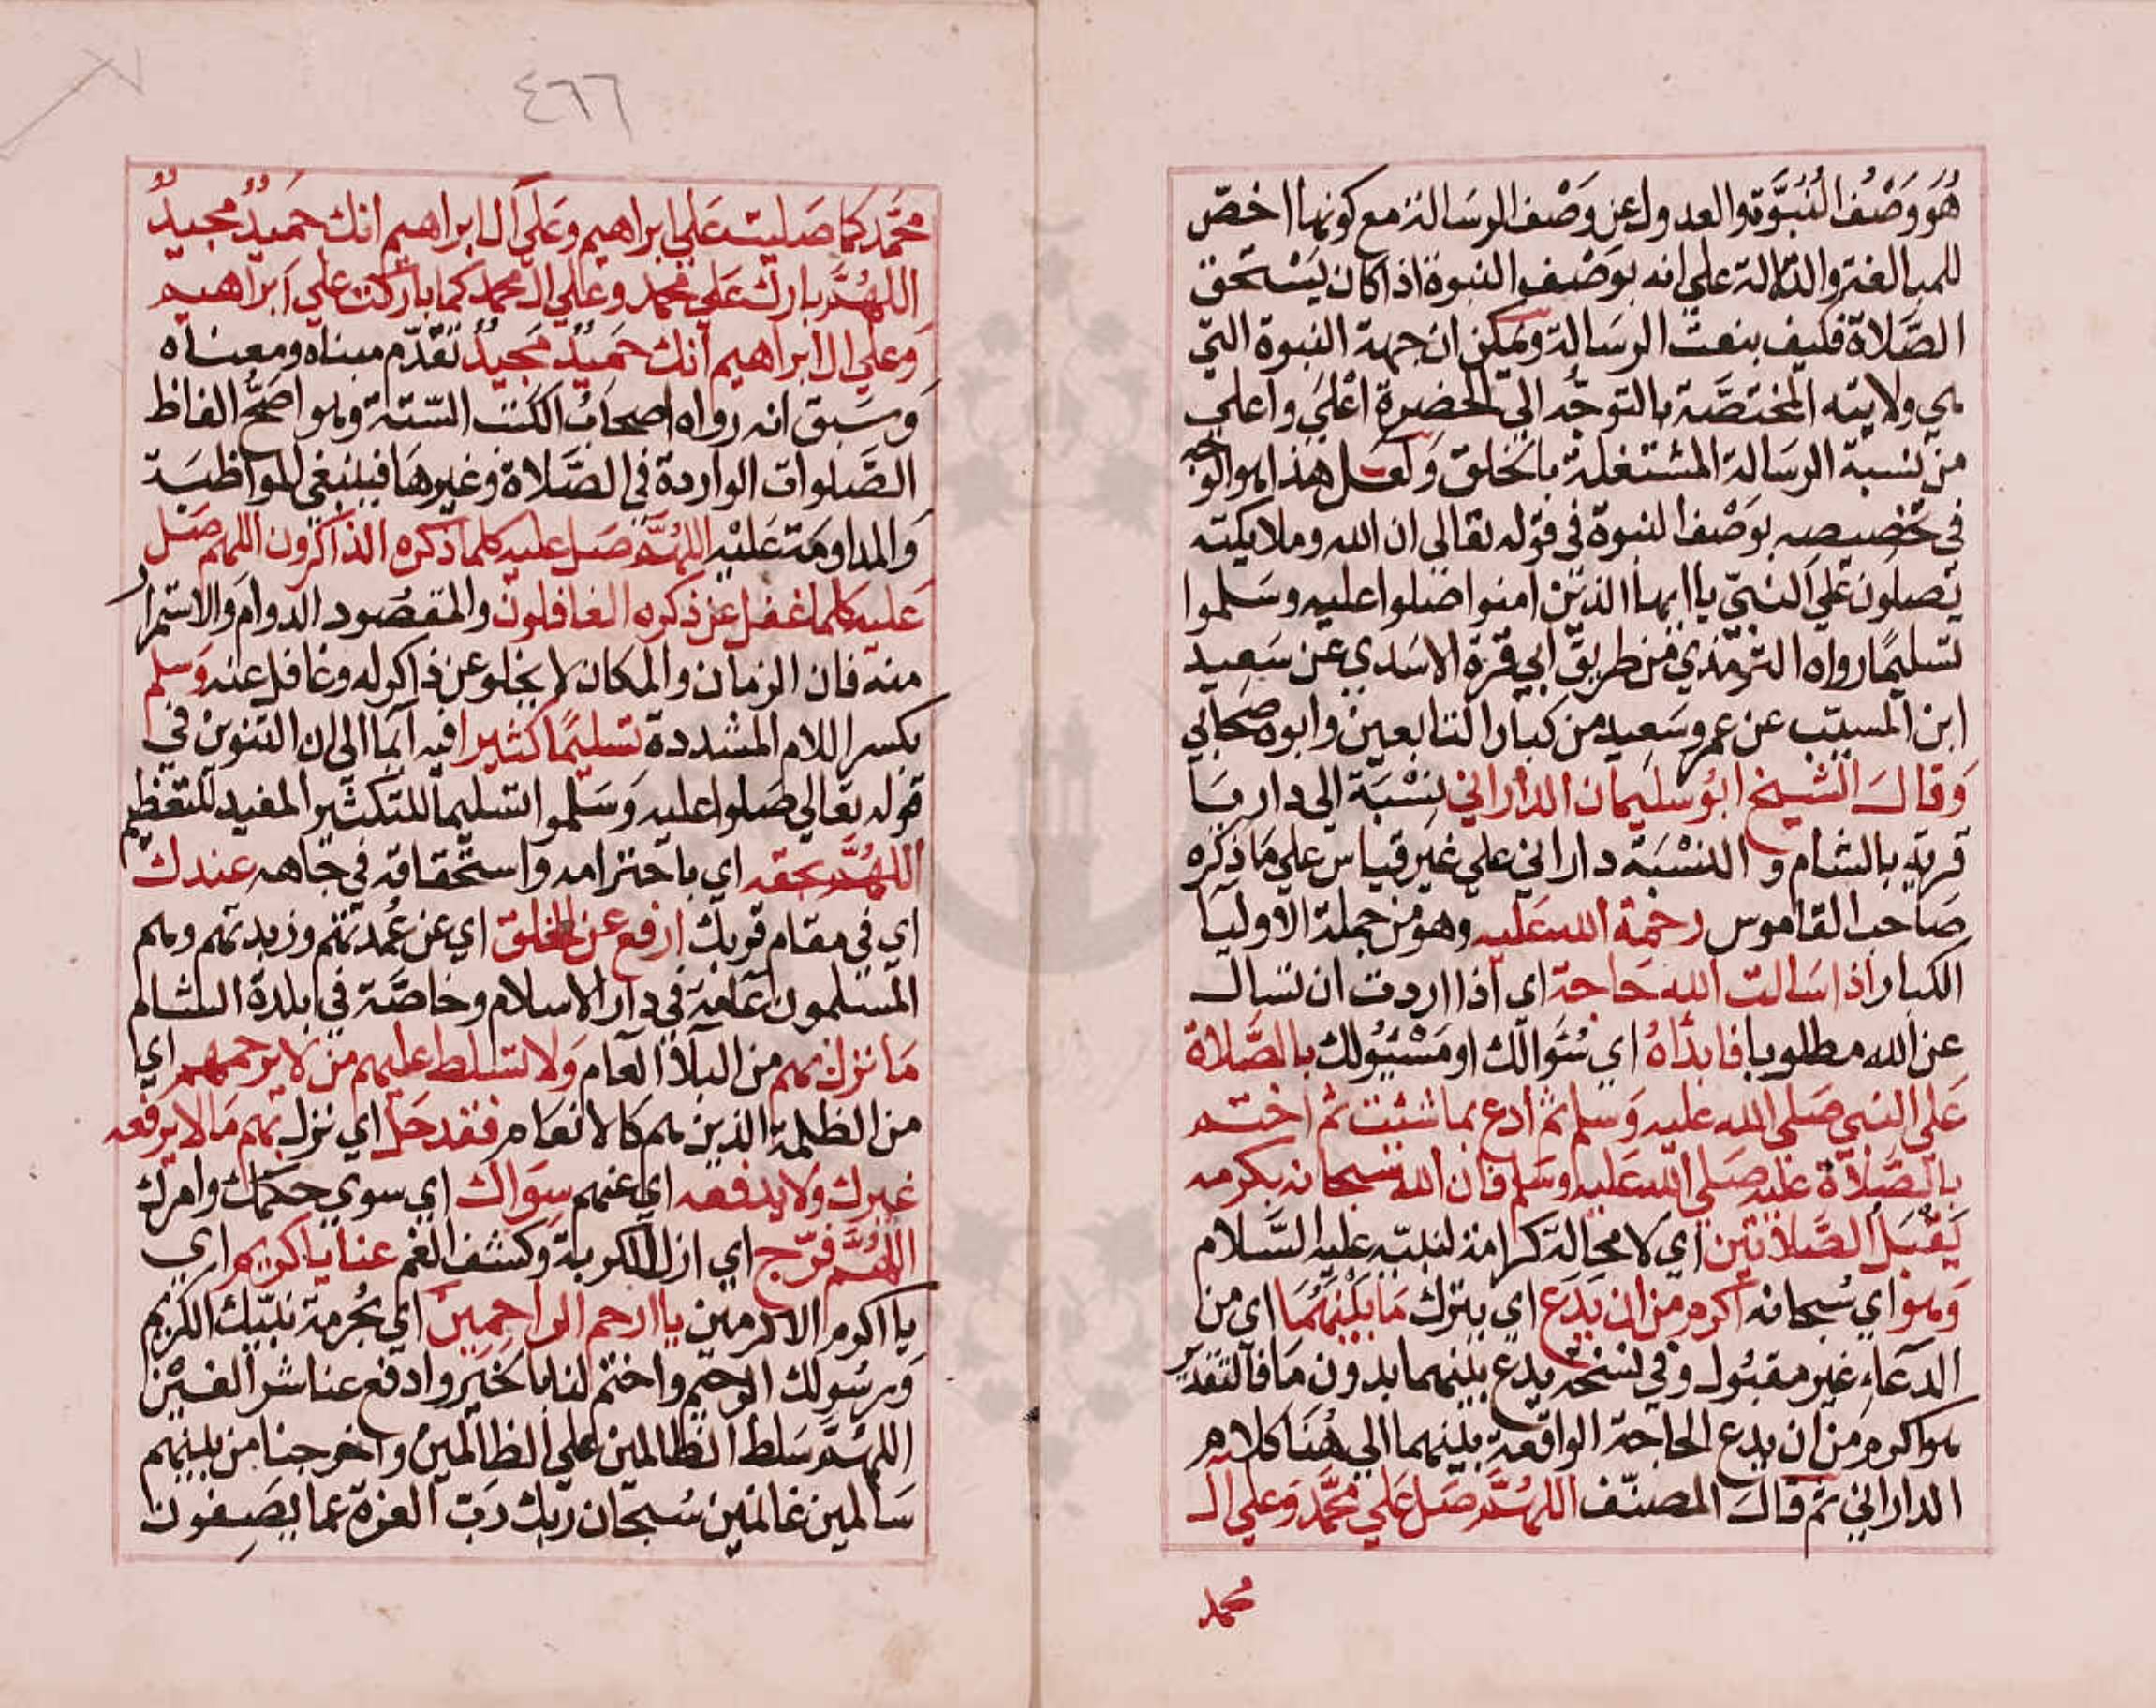 هُوَ وَصْفُ النُّبُوَّة والعدول عن وَصْف الرسَالة مع كونها اخصّ
للمبالغة والدلالة علي انه بوَصْف النبوة اذا كان يَسْتحق
الصَّلاة فكيف بنعت الرسَالة ويمكن ان جهة النبوة التي
هي ولايته المختصَّة بالتوجُّه الي الحضرة اعْلَي واعلي
من نسبة الرسالة المشتغلة بالخلق وَلعَل هذا هو الوجه
في تخصيصه بوَصْف النبوة في قوله تعالي ان الله وملايكته
يُصلوُن عَلي النبيّ يا ايها الذين امنوا صَلوا عليه وسَلموا
تسليمًا رواه الترمذي من طريق ابي قرة الاسَدي عن سَعيد
ابن المسيّب عن عمر وسَعيد من كبار التابعين وابوه صحابي
وَقالَ الشيخ ابو سليمان الداراني نِسْبَة الي داريا
قرية بالشام و النسْبَة داراني علي غير قياس علي مَا ذكره
صَاحب القاموس رحمة الله عَليه وهو من جملة الاوليا
الكبار اذا سَالت الله حَاجة اي اذا اردت ان تسال
عن الله مطلوبا فابدَاهُ اي سُؤالك او مَسْئولك بالصَّلاة
عَلي النبي صَلي الله عليه وَسلم ثم ادع بما شئت ثم اختم
بالصَّلاة عليه صَلي الله عَليه وسَلم فان الله سُبحانه بكرمه
يَقْبَل الصَّلاتين اي لا محالة كرامة لنبيّه عليه السَّلام
وَهو اي سُبحانه اكرم من ان يَدَع اي يترك مَا بَيْنهُمَا اي من
الدعَاء غير مقبُول وفي نسخة يدع بينهما بدون مَا فالتقدير
هو اكرم من ان يدع الحاجة الواقعة بينهما الي هُنَا كلام
الداراني ثم قالَ المصنّف اللهُمَّ صَل عَلي محَمَّد وَعلي ال
محمد
٤٦٦
محَمَّد كما صَليت عَلي ابراهيم وَعَلي ال ابراهيم انك حَميدٌ مجيدٌ
اللهُمَّ بارك عَلي محمد وعَلي ال محمد كما باركت علي ابراهيم
وَعلي ال ابراهيم انك حَميدٌ مَجيدٌ تقدّم مبناه ومعناه
وَسَبق انه رواه اصحابُ الكتب السّتة وهو اصَحُّ الفاظ
الصَّلوات الواردة في الصَّلاة وغيرهَا فينبغي المواظبَة
وَالمداومَة عَليْه اللهُمَّ صَل عليه كلما ذكره الذاكرون اللهم صَل
عَليه كلما غفل عن ذكره الغافلون والمقصُود الدوام وَالاستمرار
منه فان الزمان والمكان لا يخلو عن ذاكر له وغافل عنه وَسلم
بكسر اللام المشددة تسليمًا كثيرا فيه ايمَا الي ان التنوين في
قوله تعالي صَلوا عليه وَسَلموا تسليما للتكثير المفيد للتعظيم
اللهُمَّ بحقه اي باحترامه واستحقاقه في جَاهه عندك
اي في مقام قربك ارفع عن الخلق اي عن عُمدتهم وزبدتهم وهم
المسلمون عَامة في دار الاسلام وخاصَّة في بلدة الشام
مَا نزل بهم من البلاء العام وَلا تسَلط عليهم من لا يرحمهم اي
من الظلمة الذين هم كالانعام فقد حَل اي نزل بهم مَا لا يرفعه
غيرك ولا يدفعه اي عنهم سِوَاك اي سوي حكمك وامرك
اللهُمَّ فرّج اي ازل الكربة وكشف الغم عنا يا كريم اي
يا اكرم الاكرمين يا ارحم الراحِمِينَ اي بحُرمة نبيّك الكريم
وَبرسُولك الرحيم واختم لنا بالخَير وادفع عنا شر الفتن
اللهُمَّ سَلط الظالمين علي الظالمين واخرجنا من بينهم
سَالمين غانمين سُبحَان ربّك رَبّ العزة عما يَصِفون